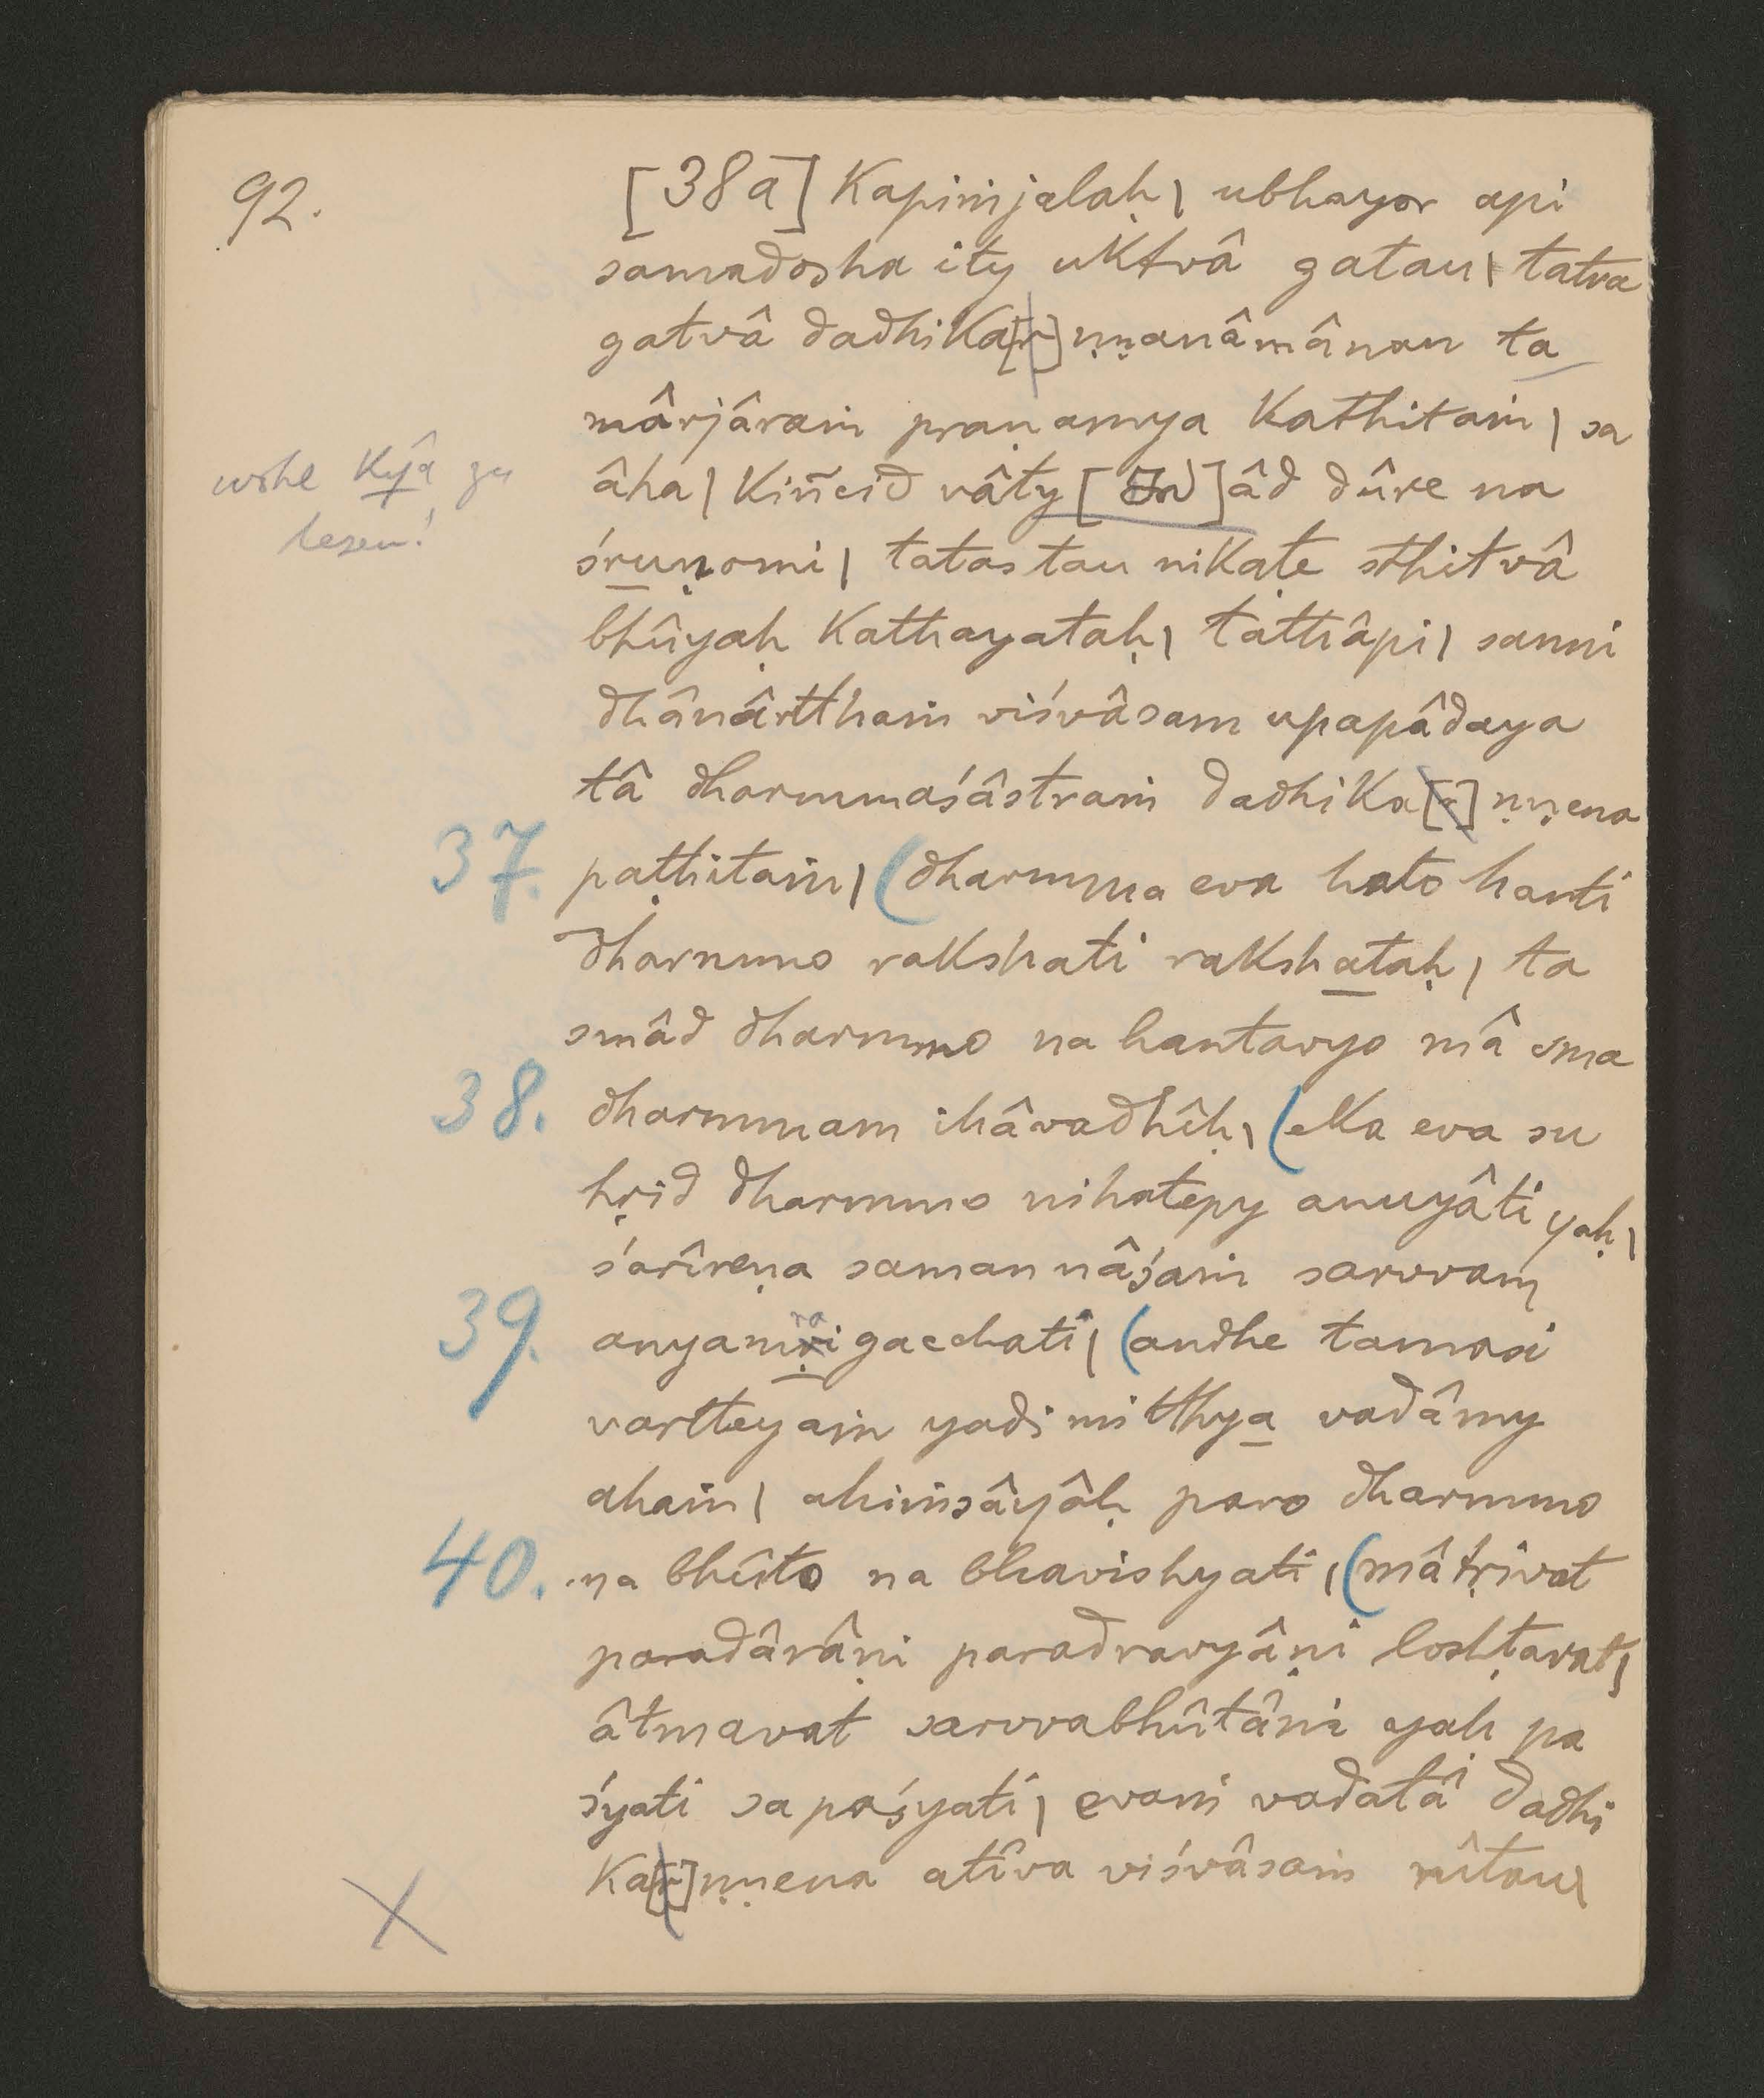 92.
[38a] Kapiṁjalaḥ | ubhayor api
samadosha ity uktvâ gatau | tatra
gatvâ dadhika[r]ṇṇanâmânan ta
mârjâraṁ praṇamya kathitaṁ | sa
âha | kiñcid vâty [ ]âd dûre na
wohl kyâ zu
lesen!
śruṇomi | tatas tau nikaṭe sthitvâ
bhûyaḥ kathayataḥ | tathâpi | sanni
dhânârtthaṁ viśvâsam upapâdaya
tâ dharmmaśâstraṁ dadhika[r]ṇṇena
37. paṭhitaṁ | (dharmma eva hato hanti
dharmmo rakshati rakshataḥ | ta
smâd dharmmo na hantavyo mâ sma
38. dharmmam ihâvadhîḥ | (eka eva su
hṛid dharmmo nihatepy anuyâti yaḥ |
śarîreṇa saman nâśaṁ sarvvam
ra
39. anyamṛi gacchati | (andhe tamasi
vartteyaṁ yadi mitthya vadâmy
ahaṁ | ahiṁsâyâḥ paro dharmmo
40. na bhûto na bhavishyati | (mâtṛivat
paradârâṇi paradravyâṇi loshṭavat |
âtmavat sarvvabhûtâni yah pa
śyati sa paśyati | evaṁ vadatâ dadhi
ka[r]ṇṇena atîva viśvâsaṁ nîtau |
X